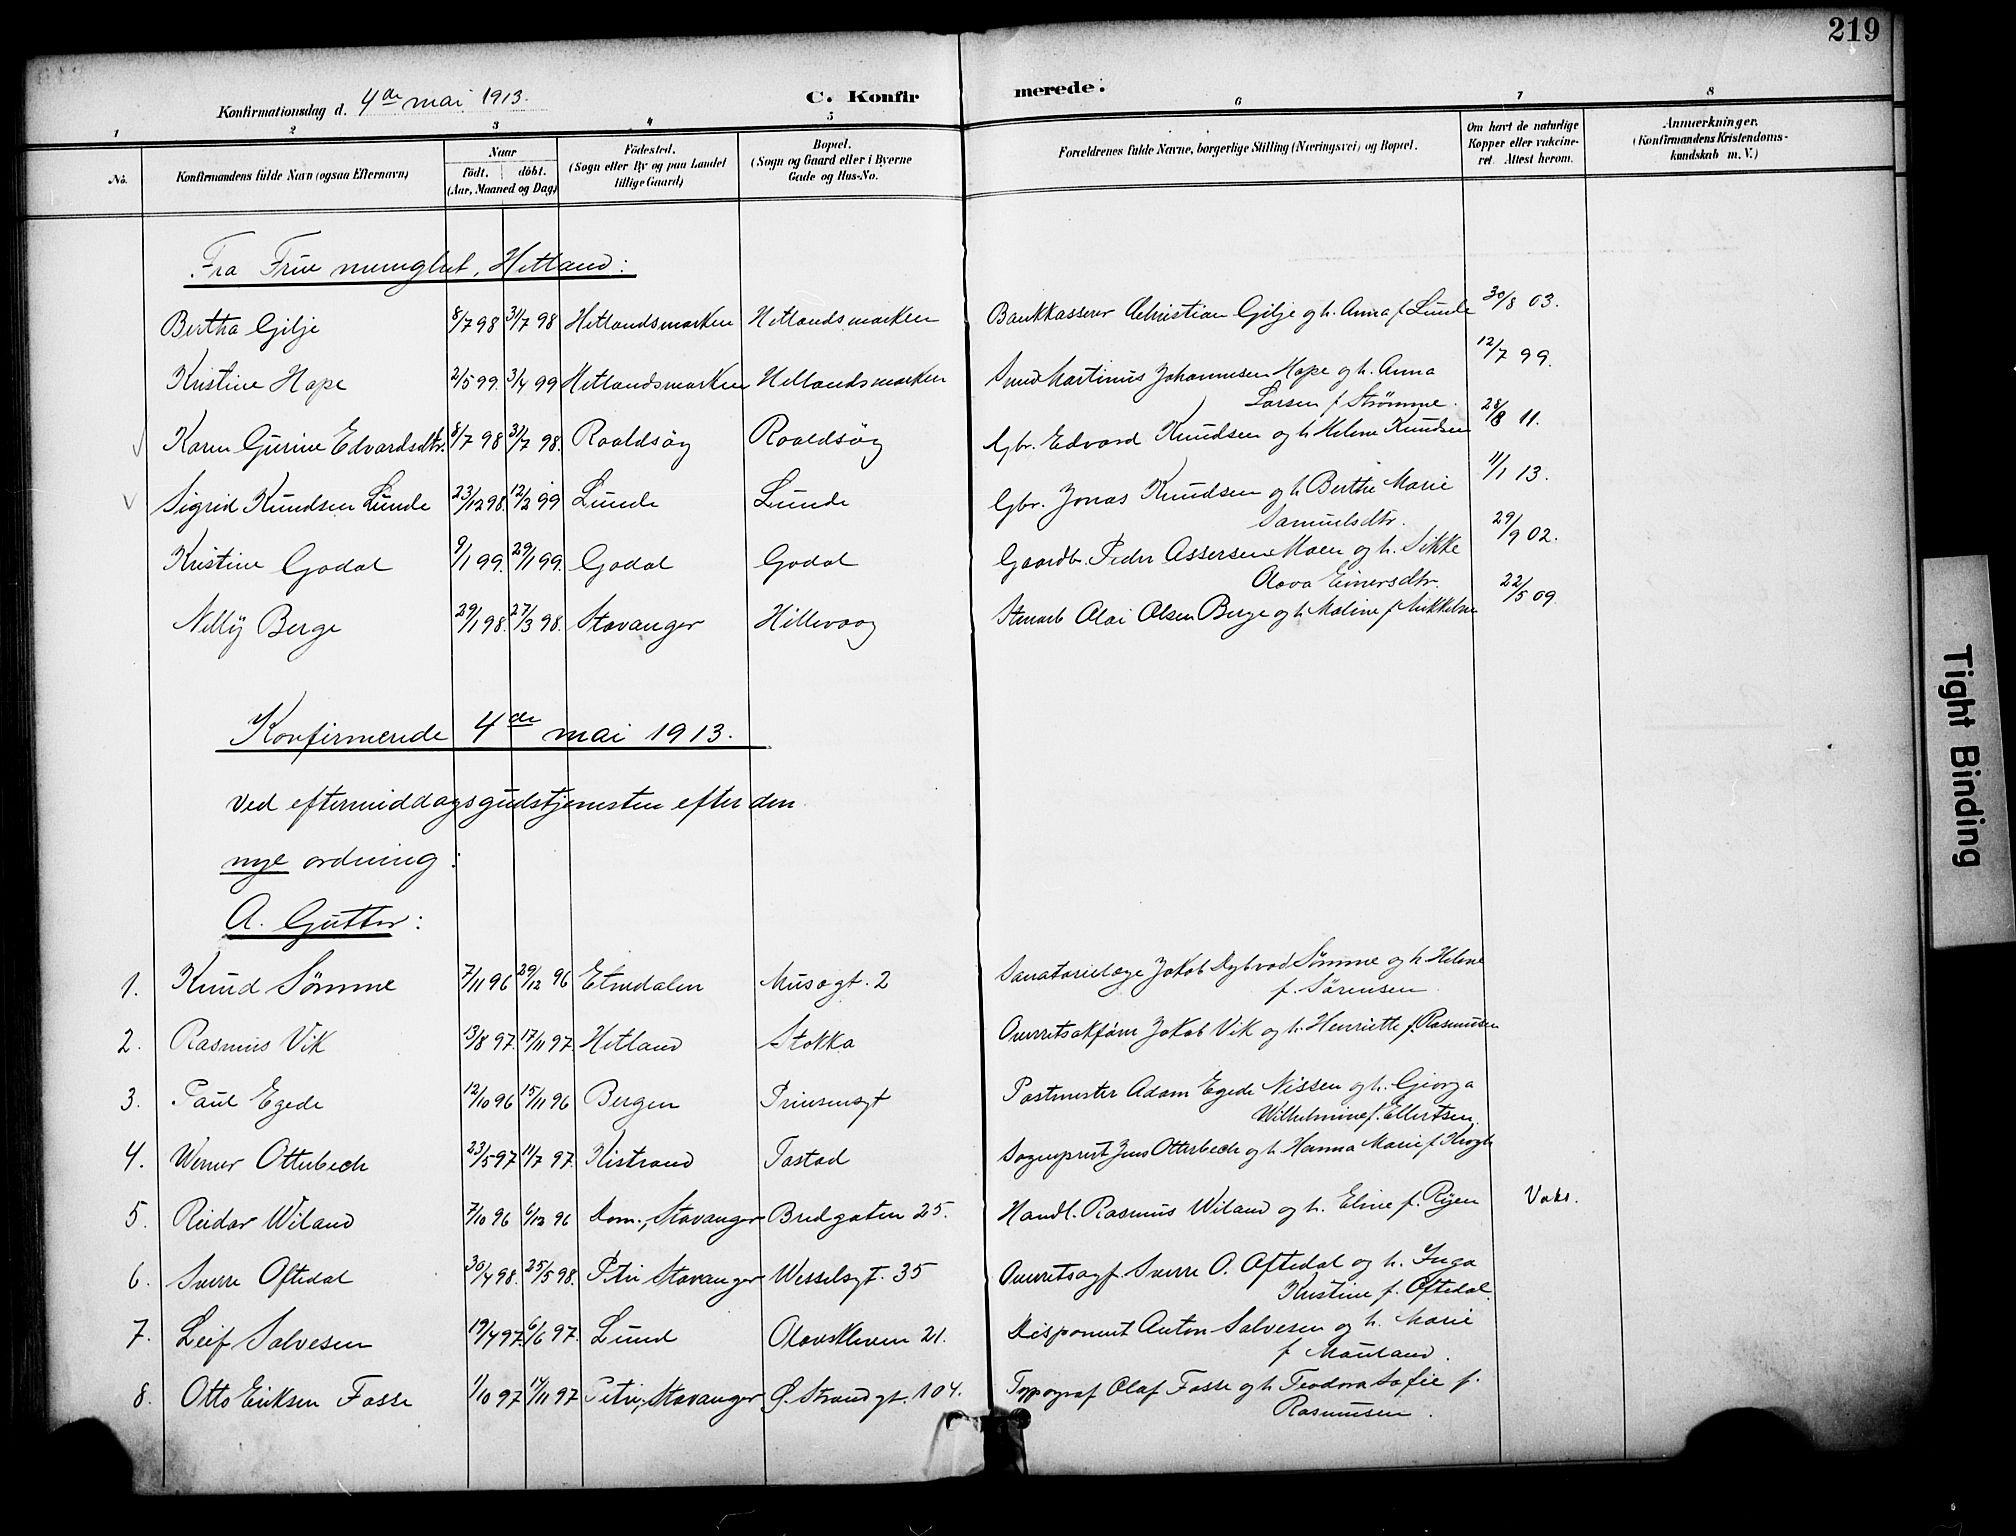 219
Konfirmationsdag d. 4de mai 1913.
C. Konfirmerede.
1 2 3 4 5 6 7 8
No.
Konfirmandens fulde Navn (ogsaa Efternavn)
Naar
født. døbt.
(Aar, Maaned og Dag)
Fødested.
(Sogn eller By og paa Landet
tillige Gaard)
Bopæl.
(Sogn og Gaard eller i Byerne
Gade og Hus-No.
Forældrenes fulde Navne, borgerlige Stilling (Næringsvei) og Bopæl.
Om havt de naturlige
Kopper eller vakcine-
ret. Attest herom.
Anmærkninger.
(Konfirmandens Kristendoms-
kundskab m. V.)
Fra Frue menighet, Hetland:
Bertha Gilje 8/7 98 31/7 98 Hetlandsmarken Hetlandsmarken Bankkasserer Christian Gilje og h. Anna f Lunde 30/8 03.
Kristine Hope 2/5 99. 3/4 99 Hetlandsmarken Hetlandsmarken Smed Martinus Johannesen Hope og h. Anna 12/7 99.
Larsen f Strømme.
Karen Gurine Edvardsdtr. 8/7 98 31/7 98. Roaldsøy Roaldsøy Gbr. Edvard Knudsen og h Helene Knudsen 28/8 11.
Sigrid Knudsen Lunde 23/12 98. 12/2 99 Lunde Lunde Gbr. Jonas Knudsen og h Berthe Marie 11/1 13.
Samuelsdtr.
Kristine Godal 9/1 99. 29/1 99. Godal Godal Gaardb. Peder Assersen Moen og h. Sikke 29/9 02.
Olava Einersdtr.
Nelly Berge 29/1 98. 27/3 98. Stavanger Hillevaag Stenarb Olai Olsen Berge og h Maline f Mikkelsen 22/5 09.
Konfirmerede 4de mai 1913.
ved eftermiddagsgudstjenesten efter den
nye ordning:
A. Gutter:
1. Knud Sømme 7/11 96 29/12 96 Etnedalen Musegt. 2 Sanatorielæge Jakob Dybvad Sømme og h. Helene
f. Sørensen
2. Rasmus Vik 13/8 97. 17/11 97. Hetland Stokka Overretsakfører Jakob Vik og h. Henriette f. Rasmussen
3. Paul Egede 12/10 96 15/11 96 Bergen Prinsensgt Postmester Adam Egede Nissen og h. Georga
Wilhelmine f. Ellertsen.
4. Werner Otterbech 23/5 97 11/7 97. Kistrand Tastad Sogneprest Jens Otterbech og h. Hanna Marie f. Krogh
5. Reidar Wiland 7/10 96 6/12 96 Dom., Stavanger Bredgaten 25. Handl. Rasmus Wiland og h. Eline f. Ryen Vaks.
6. Sverre Oftedal 30/4 98. 25/5 98. Petri Stavanger Wesselsgt. 35 Overretssagf. Sverre O. Oftedal og h. Inga
Kristine f. Oftedal.
7. Leif Salvesen 19/4 97. 6/6 97. Lund Olavskleven 21. Disponent Anton Salvesen og h. Marie
f Mauland.
8. Otto Eriksen Fosse 1/10 97 14/11 97 Petri, Stavanger Ø. Strandgt. 104. Typograf Olaf Fosse og h Teodora Sofie f.
Rasmussen.
Tight Binding